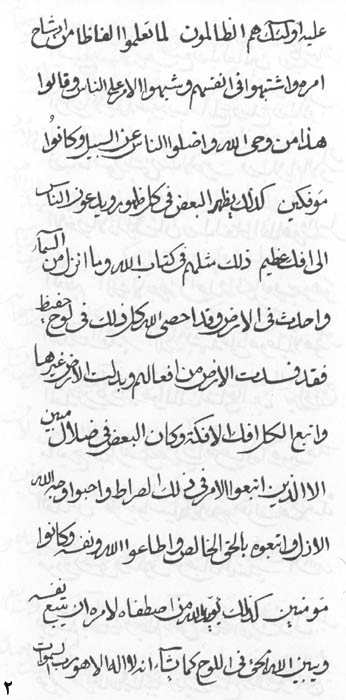 عليه اولئك هم الظالمون لما تعلموا الفاظا من رشاح
امره واشتبهوا فى انفسهم وشبهوا الامر على الناس وقالوا
هذا من وحى الله واضلوا الناس عن السبيل وكانوا
مؤفكين كذلك يظهر البعض فى كل ظهور ويدعون الناس
الى افك عظيم ذلك مثلهم فى كتاب الله وما انزل من السماء
واحدث فى الارض وقد احصى الله كل ذلك فى لوح حفيظ
فقد فسدت الارض من افعالهم وبدلت الارض غيرها
واتبع الكل افك الافكة وكان البعض فى ضلال مبين
الا الذين اتبعوا الامر فى ذلك الصراط واحبوا وجه الله
الازل واتبعوه بالحق الخالص واطاعوا الله ونفسه وكانوا
مؤمنين كذلك يؤيد الله من اصطفاه لامره ان يتبع نفسه
ويبين الله الحق فى اللوح كما يشآء انه لا اله الا هو رب السموات
٢